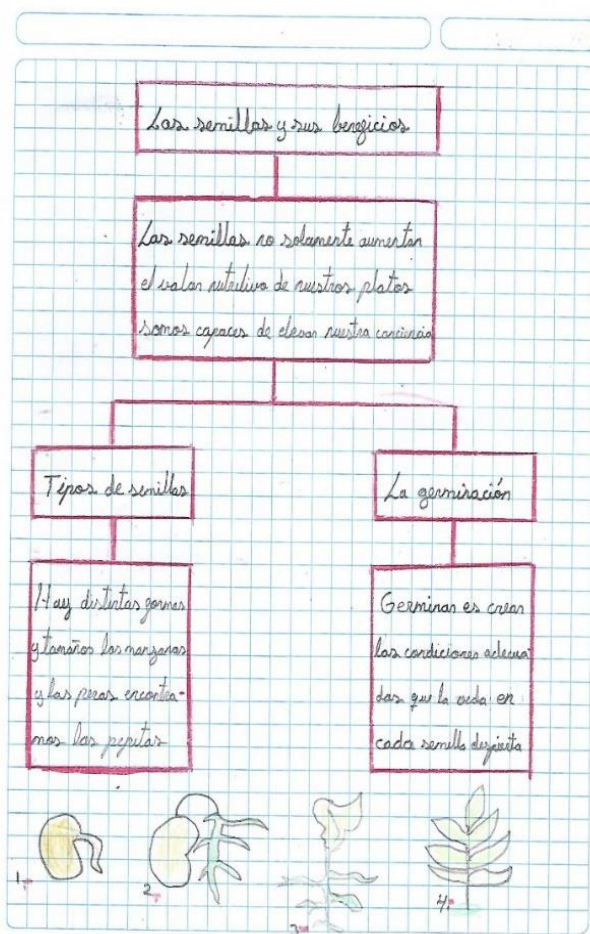 Las semillas y sus beneficios
Las semillas no solamente aumentan
el valor nutritivo de nuestros platos
somos capaces de elevar nuestra conciencia
Tipos de semillas
La germinación
Hay distintas formas
y tamaños las manzanas
y las peras encontra-
mos las pepitas
Germinar es crear
las condiciones adecua
das que la vida en
cada semilla despierta
1.
2.
3.
4.